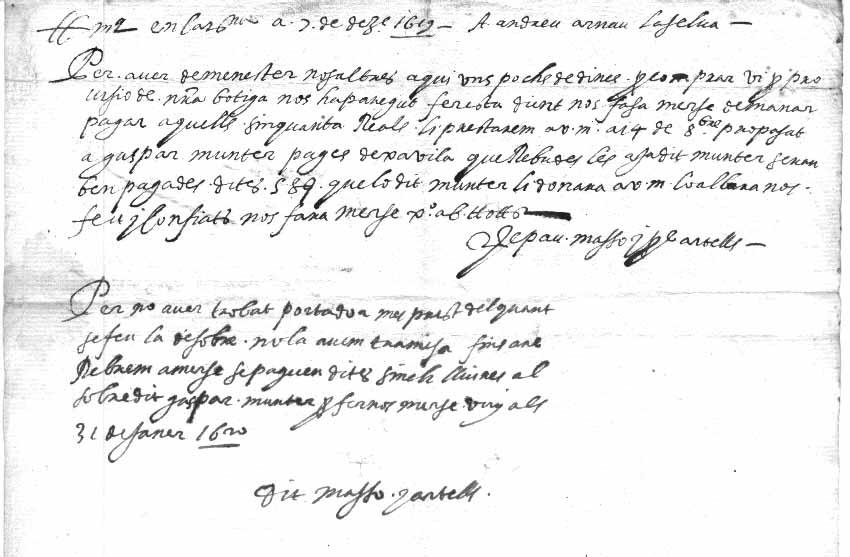 en a 7 de deze 1619 A andreu arnau laselva
Per aver demenester nosaltres aqui uns pochs de dines y comprar vi y pro
de nra botiga nos haparegut fer esta dient nos fasa merse de manar
pagar aquells sinquanta Reals li prestarem a v.m. als 4 de proposat
a gaspar munter pages de vavila que Rebudes les a dit munter seran
ben pagades dites que lo dit munter li donara a v.m. nos
feu y nos fara merse xo ab tots
Jepau masso y artells
Per no aver trobat portador mes prest del quant
se feu la desobre no la avem tramesa fins are
Rebrem a merse se paguen dites sinch lliures al
sobredit gaspar munter y fernos merse vuy als
31 de janer 1620
dit masso y artells.